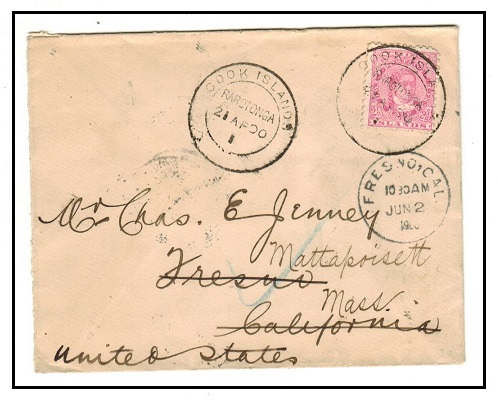 COOK ISLANDS
RAROTONGA
21 AP 00
1
COOK ISL
RAROTONGA
ISLANDS
FRESNO, CAL.
10 30 AM
JUN 2
Mr Chas. E Jenney
Mattapoisett
Fresno
Mass.
California
United States